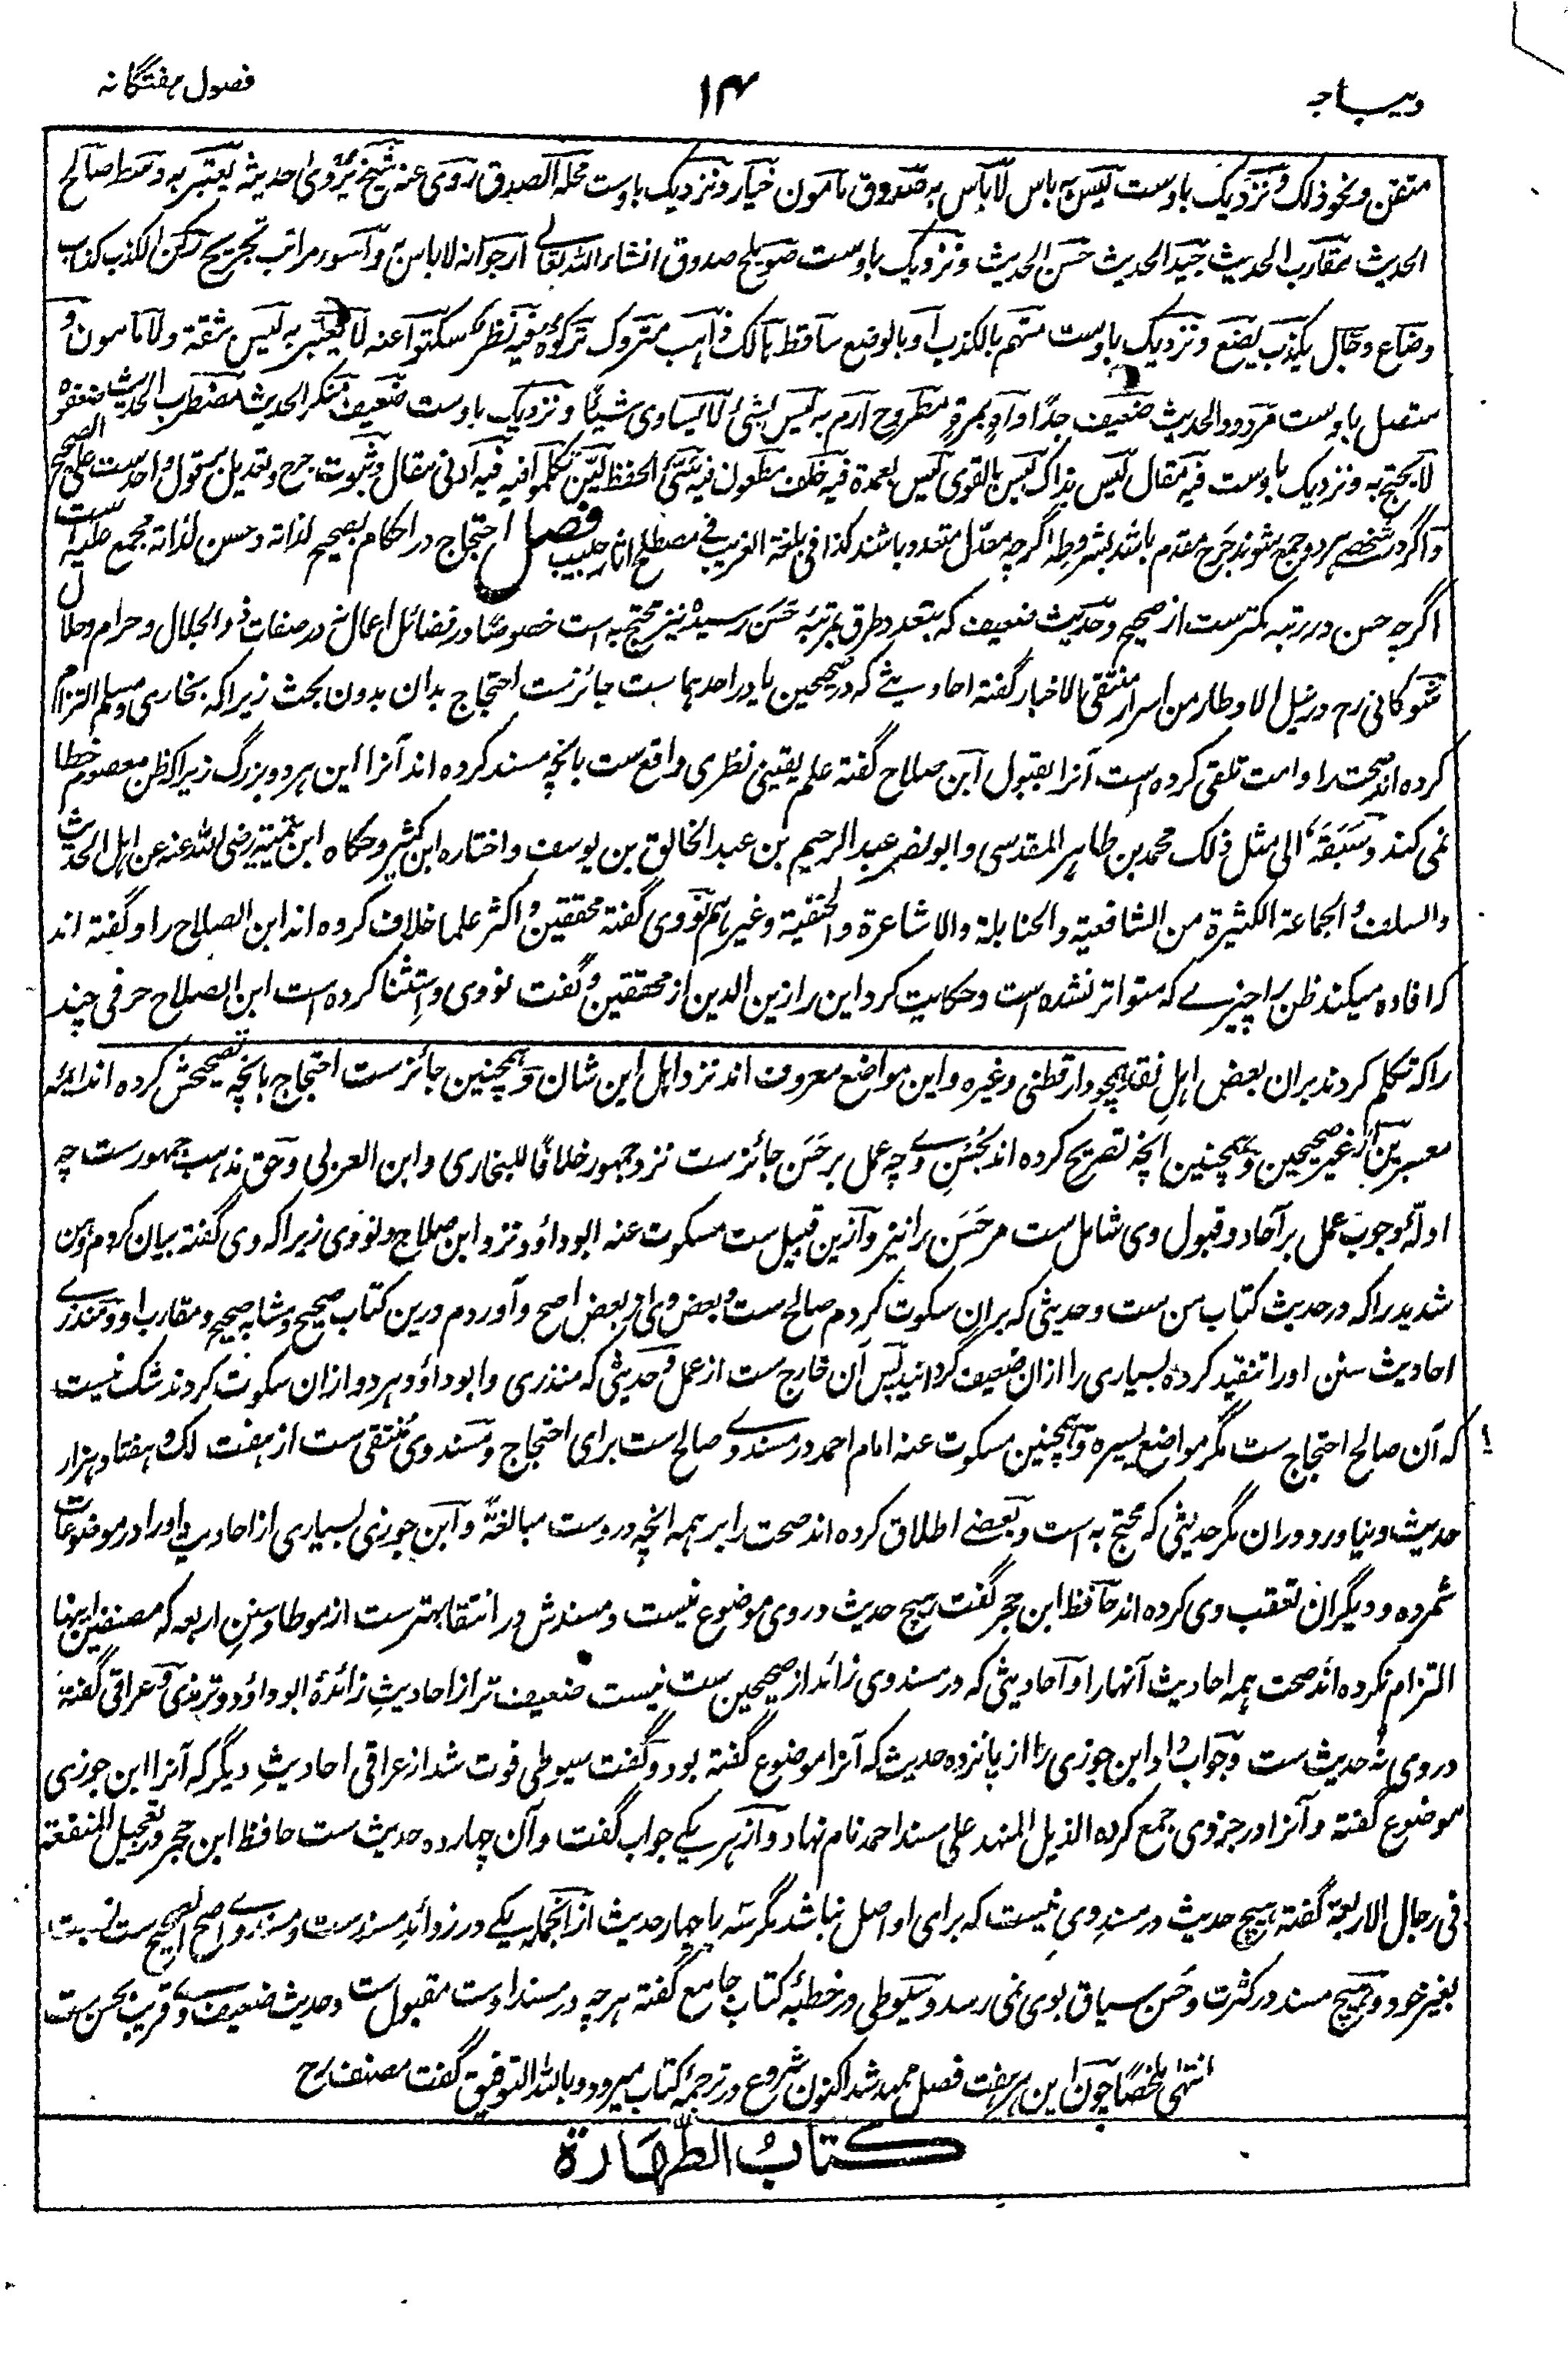 دیباجہ ۱۴ فصول ہفتگانہ
متقن و نحو ذلک و نزدیک باوست لیس بہ باس لا باس بہ صدوق مامون خیار و نزدیک باوست محلہ الصدق روی عنہ شیخ یروی حدیثہ یعتبر بہ وسط صالح
الحدیث مقارب الحدیث جید الحدیث حسن الحدیث و نزدیک باوست صویلح صدوق انشاء اللہ تعالے ارجو انہ لا باس بہ و اسور مراتب تجریح رکن الکذب کذاب
وضاع دجال یکذب یضع و نزدیک باوست متہم بالکذب او بالوضع ساقط ہالک ذاہب متروک ترکوہ فیہ نظر سکتوا عنہ لا یعتبر بہ لیس بثقة ولا مامون و
متصل باوست مردود الحدیث ضعیف جدًا واہ بمرة مطروح ارم بہ لیس بشئ لا یساوی شیئًا و نزدیک باوست ضعیف منکر الحدیث مضطرب الحدیث ضعفوہ
لا یحتج بہ و نزدیک باوست فیہ مقال لیس بذاک لیس بالقوی لیس بعمدة فیہ خلف مطعون فیہ سئ الحفظ لین تکلموا فیہ فیہ ادنی مقال و ثبوت جرح و تعدیل بقول واحدست علی الصحیح
و اگر در شخصے ہر دو جمع شوند جرح مقدم باشد بشروطہ اگرچہ معدل متعدد باشند کذا فی بلغة الغریب فے مصطلح اثار حبیب فصل احتجاج در احکام بصحیح لذاتہ و حسن لذاتہ مجمع علیہ است
اگرچہ حسن در رتبہ کمترست از صحیح و حدیث ضعیف کہ بتعدد طرق بمرتبہ حسن رسیدہ نیز محتج بہ است خصوصًا در فضائل اعمال نہ در صفات ذو الجلال و حرام و حلال
شوکانی رح در نیل الاوطار من اسرار منتقی الاخبار گفتہ احادیثے کہ در صحیحین یا در احدہماست جائزست احتجاج بدان بدون بحث زیراکہ بخاری و مسلم التزام
کردہ اند صحت را و امت تلقی کردہ است آنرا بقبول ابن صلاح گفتہ علم یقینی نظری واقع ست بانچہ مسند کردہ اند آنرا این ہر دو بزرگ زیراکہ ظن معصوم خطا
نمی کند و سبقہ الی مثل ذلک محمد بن طاہر المقدسی و ابو نصر عبد الرحیم بن عبد الخالق بن یوسف و اختارہ ابن کثیر و حکاہ ابن تیمیة رضی اللہ عنہ عن اہل الحدیث
والسلف و الجماعة الکثیرة من الشافعیة والحنابلة والاشاعرة والحنفیة وغیرہم نووی گفتہ محققین و اکثر علما خلاف کردہ اند ابن الصلاح را و گفتہ اند
کہ افادہ میکند ظن را چیزے کہ متواتر نشدہ است و حکایت کرد این را زین الدین از محققین و گفت نووی و استثنا کردہ است ابن الصلاح حرفی چند
را کہ تکلم کردند بران بعض اہل نقد ہمچو دارقطنی وغیرہ و این مواضع معروف اند نزد اہل این شان و ہمچنین جائزست احتجاج بانچہ تصحیحش کردہ اند ائمہ
معتبرین از غیر صحیحین و ہمچنین انچہ تصریح کردہ اند بحسن وے چہ عمل بر حسن جائزست نزد جمہور خلافًا للبخاری و ابن العربی و حق مذہب جمہورست چہ
ادلّہ وجوب عمل بر آحاد و قبول وی شامل ست مر حسن را نیز و ازین قبیل ست مسکوت عنہ ابوداؤد نزد ابن صلاح و نووی زیراکہ وی گفتہ بیان کردم وہن
شدید را کہ در حدیث کتاب من ست و حدیثی کہ بران سکوت کردم صالح ست و بعض وی از بعض اصح و آوردم درین کتاب صحیح و مشابہ صحیح و مقارب او و منذرے
احادیث سنن او را تنقید کردہ بسیاری را ازان ضعیف گردانید پس آن خارج ست از عمل و حدیثی کہ منذری و ابوداؤد ہر دو ازان سکوت کردند شک نیست
کہ آن صالح احتجاج ست مگر مواضع یسیرہ و ہمچنین مسکوت عنہ امام احمد در مسند وے صالح ست برای احتجاج و مسند وی منتقی ست از ہفت لک و ہفتاد ہزار
حدیث و نیاورد دران مگر حدیثی کہ محتج بہ است و بعضے اطلاق کردہ اند صحت را بر ہمہ انچہ دروست مبالغةً و ابن جوزی بسیاری از احادیث او را در موضوعات
شمردہ و دیگران تعقب وی کردہ اند حافظ ابن حجر گفت ہیچ حدیث در وی موضوع نیست و مسندش در انتقا بہترست از موطا و سنن اربعہ کہ مصنفین اینہا
التزام نکردہ اند صحت ہمہ احادیث آنہا را و احادیثی کہ در مسند وی زائد از صحیحین ست نیست ضعیف تر از احادیث زائدۂ ابوداؤد و ترمذی و عراقی گفتہ
در وی نہ حدیث ست و جواب داد ابن جوزی را از پانزدہ حدیث کہ آنرا موضوع گفتہ بود و گفت سیوطی فوت شد از عراقی احادیث دیگر کہ آنرا ابن جوزی
موضوع گفتہ و آنرا در جزوی جمع کردہ الذیل الممہد علی مسند احمد نام نہاد و از ہر یکے جواب گفت و آن چہاردہ حدیث ست حافظ ابن حجر در تعجیل المنفعة
فی رجال الاربعة گفتہ ہیچ حدیث در مسند وی نیست کہ برای او اصل نباشد مگر سہ یا چہار حدیث ازانجملہ یکے در زوائد مسندست و مسند وے اصح الصحیح ست نسبت
بغیر خود و ہیچ مسند در کثرت و حسن سیاق بوی نمی رسد و سیوطی در خطبۂ کتاب جامع گفتہ ہرچہ در مسند اوست مقبول ست و حدیث ضعیف وے قریب بحسن ست
انتہی ملخصًا چون این ہر ہفت فصل ممہد شد اکنون شروع در ترجمۂ کتاب میرود و باللہ التوفیق گفت مصنف رح
کتاب الطہارة